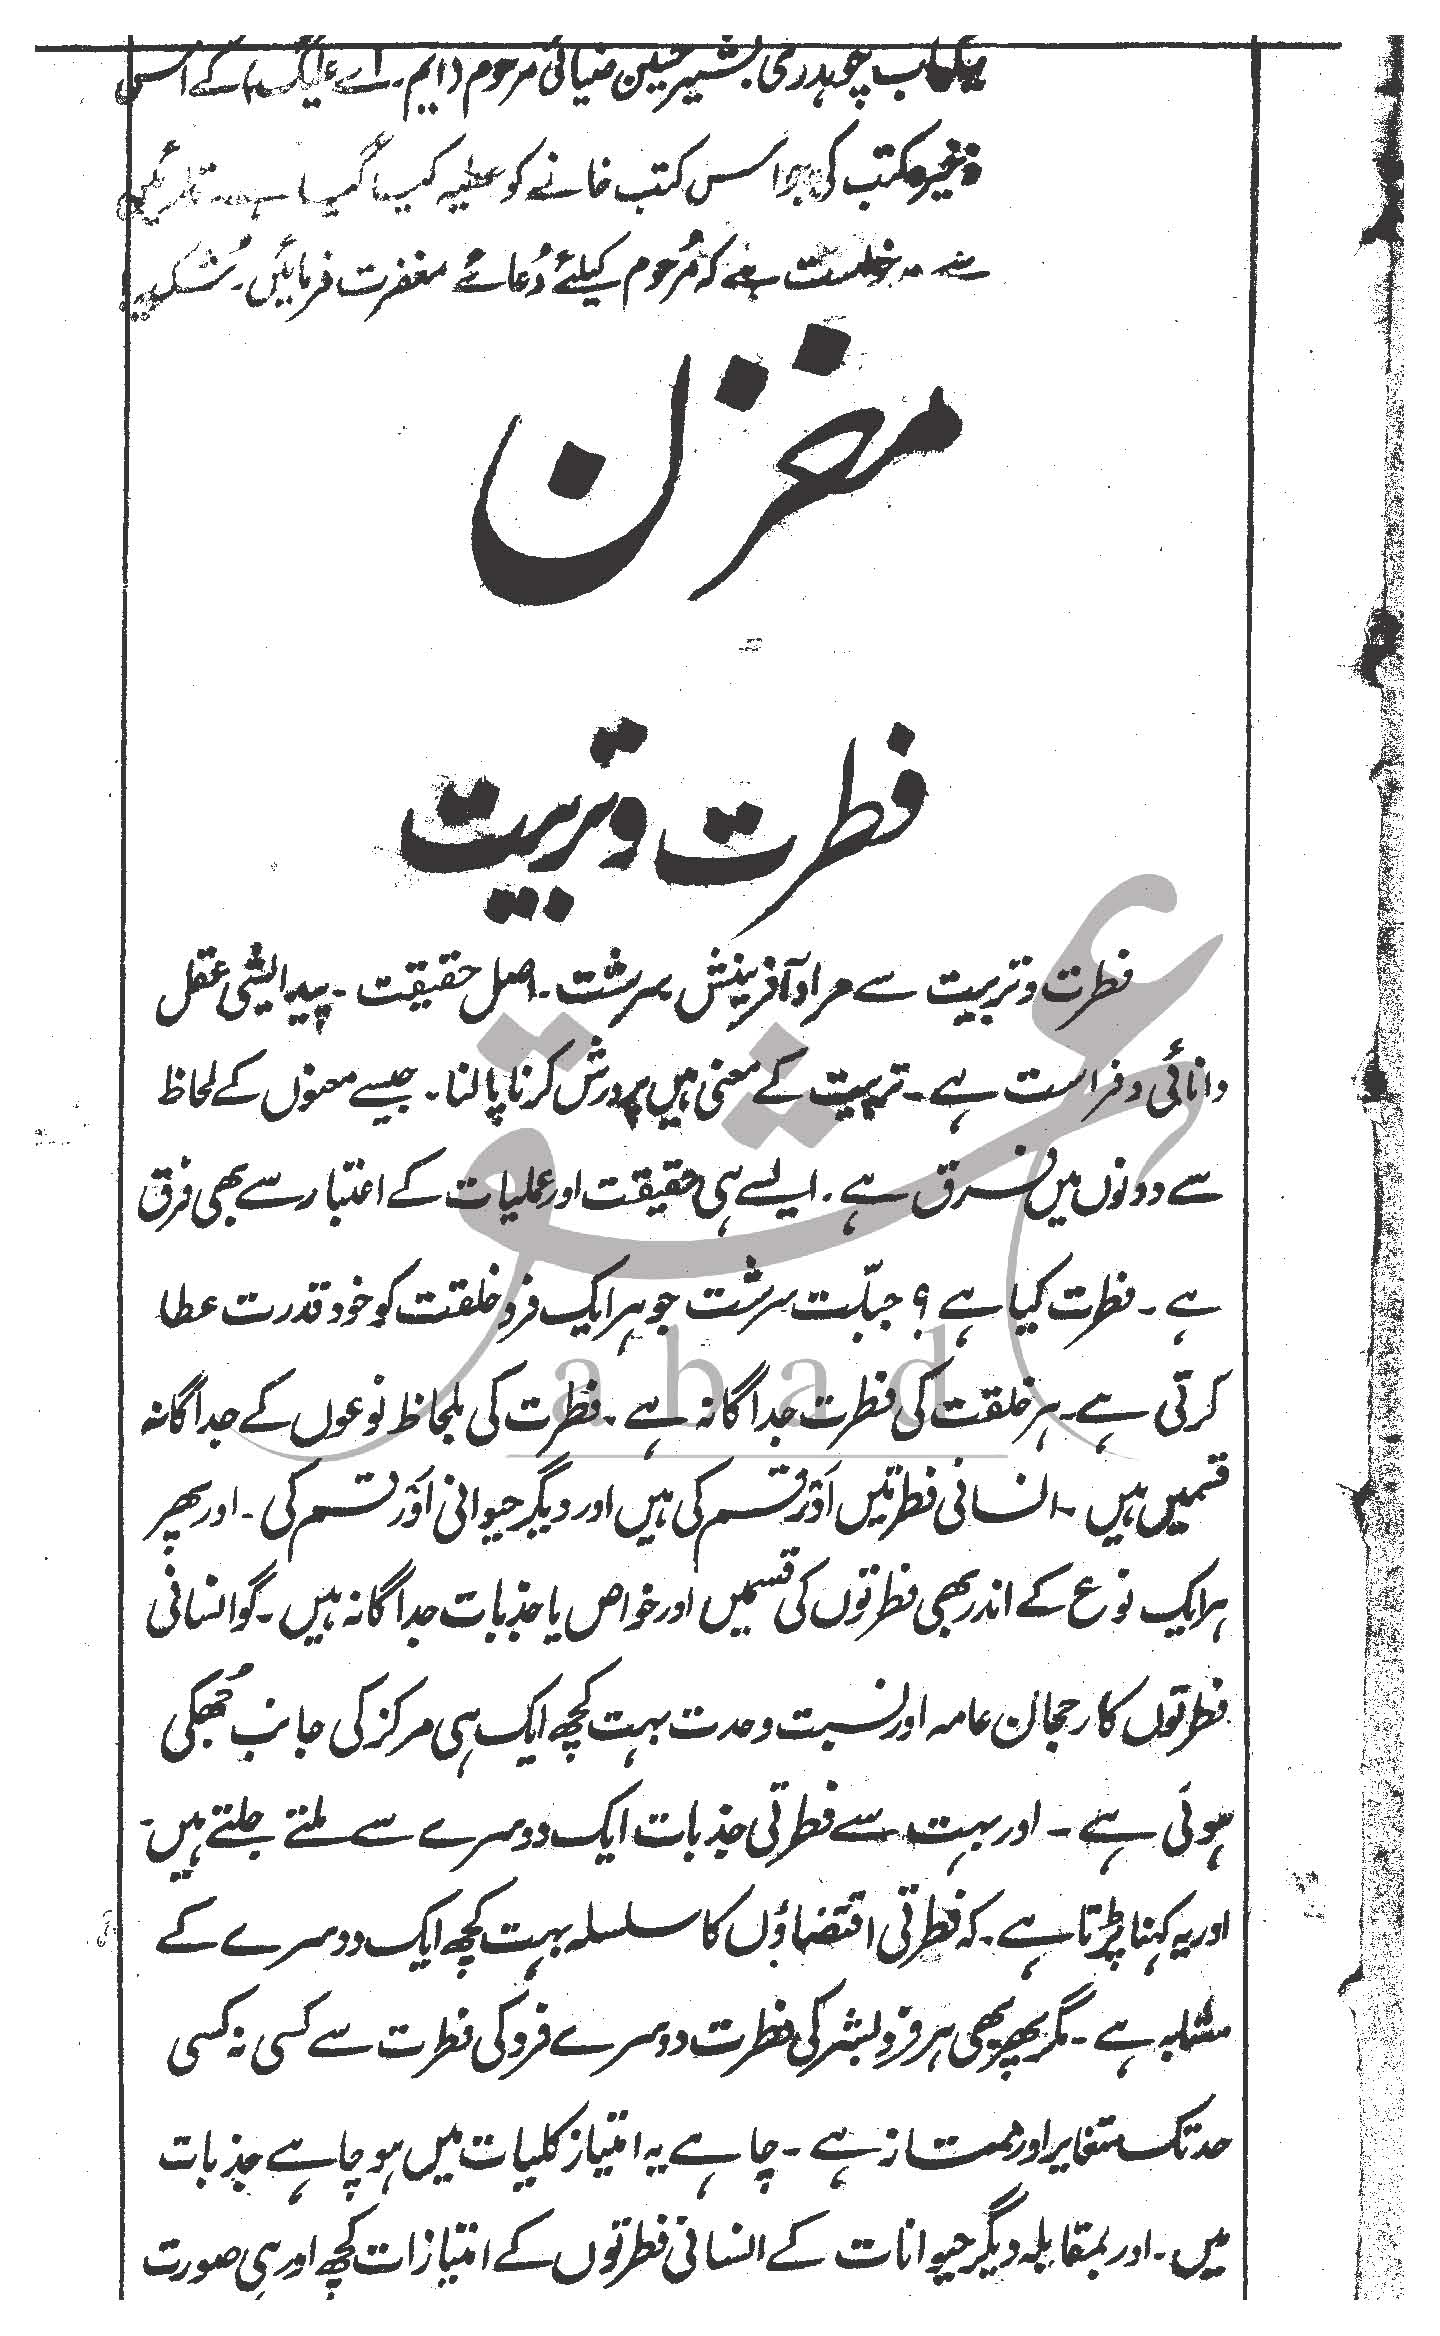 یہ کتاب چوہدری بشیر حسین ضیائی مرحوم (ایم۔اے علیگ) کے اس
ذخیرہ کتب کی ہے جو اس کتب خانے کو عطیہ کیا گیا ہے۔ قارئین
سے درخواست ہے کہ مرُحوم کیلئے دُعائے مغفرت فرمائیں۔ شُکریہ
مخزن
فطرت و تربیت
فطرت و تربیت سے مراد آفرینش سرشت۔ اصل حقیقت۔ پیدایشی عقل
دانائی و فراست ہے۔ تربیت کے معنی ہیں پرورش کرنا پالنا۔ جیسے معنوں کے لحاظ
سے دونوں میں فرق ہے۔ ایسے ہی حقیقت اور عملیات کے اعتبار سے بھی فرق
ہے۔ فطرت کیا ہے؟ جبلّت سرشت جو ہر ایک فرد خلقت کو خود قدرت عطا
کرتی ہے۔ ہر خلقت کی فطرت جداگانہ ہے۔ فطرت کی بلحاظ نوعوں کے جداگانہ
قسمیں ہیں۔ انسانی فطرتیں اَور قسم کی ہیں اور دیگر حیوانی اَور قسم کی۔ اور پھر
ہر ایک نوع کے اندر بھی فطرتوں کی قسمیں اور خواص یا جذبات جداگانہ ہیں۔ گو انسانی
فطرتوں کا رجحان عامہ اور نسبت وحدت بہت کچھ ایک ہی مرکز کی جانب جُھکی
ہوئی ہے۔ اور بہت سے فطرتی جذبات ایک دوسرے سے ملتے جلتے ہیں۔
اور یہ کہنا پڑتا ہے۔ کہ فطرتی اقتضاؤں کا سلسلہ بہت کچھ ایک دوسرے کے
مشابہ ہے۔ مگر پھر بھی ہر فرد بشر کی فطرت دوسرے فرد کی فطرت سے کسی نہ کسی
حد تک متغایر اور ممتاز ہے۔ چاہے یہ امتیاز کلیات میں ہو چاہے جذبات
میں۔ اور بمقابلہ دیگر حیوانات کے انسانی فطرتوں کے امتیازات کچھ اور ہی صورت
عشق
abad